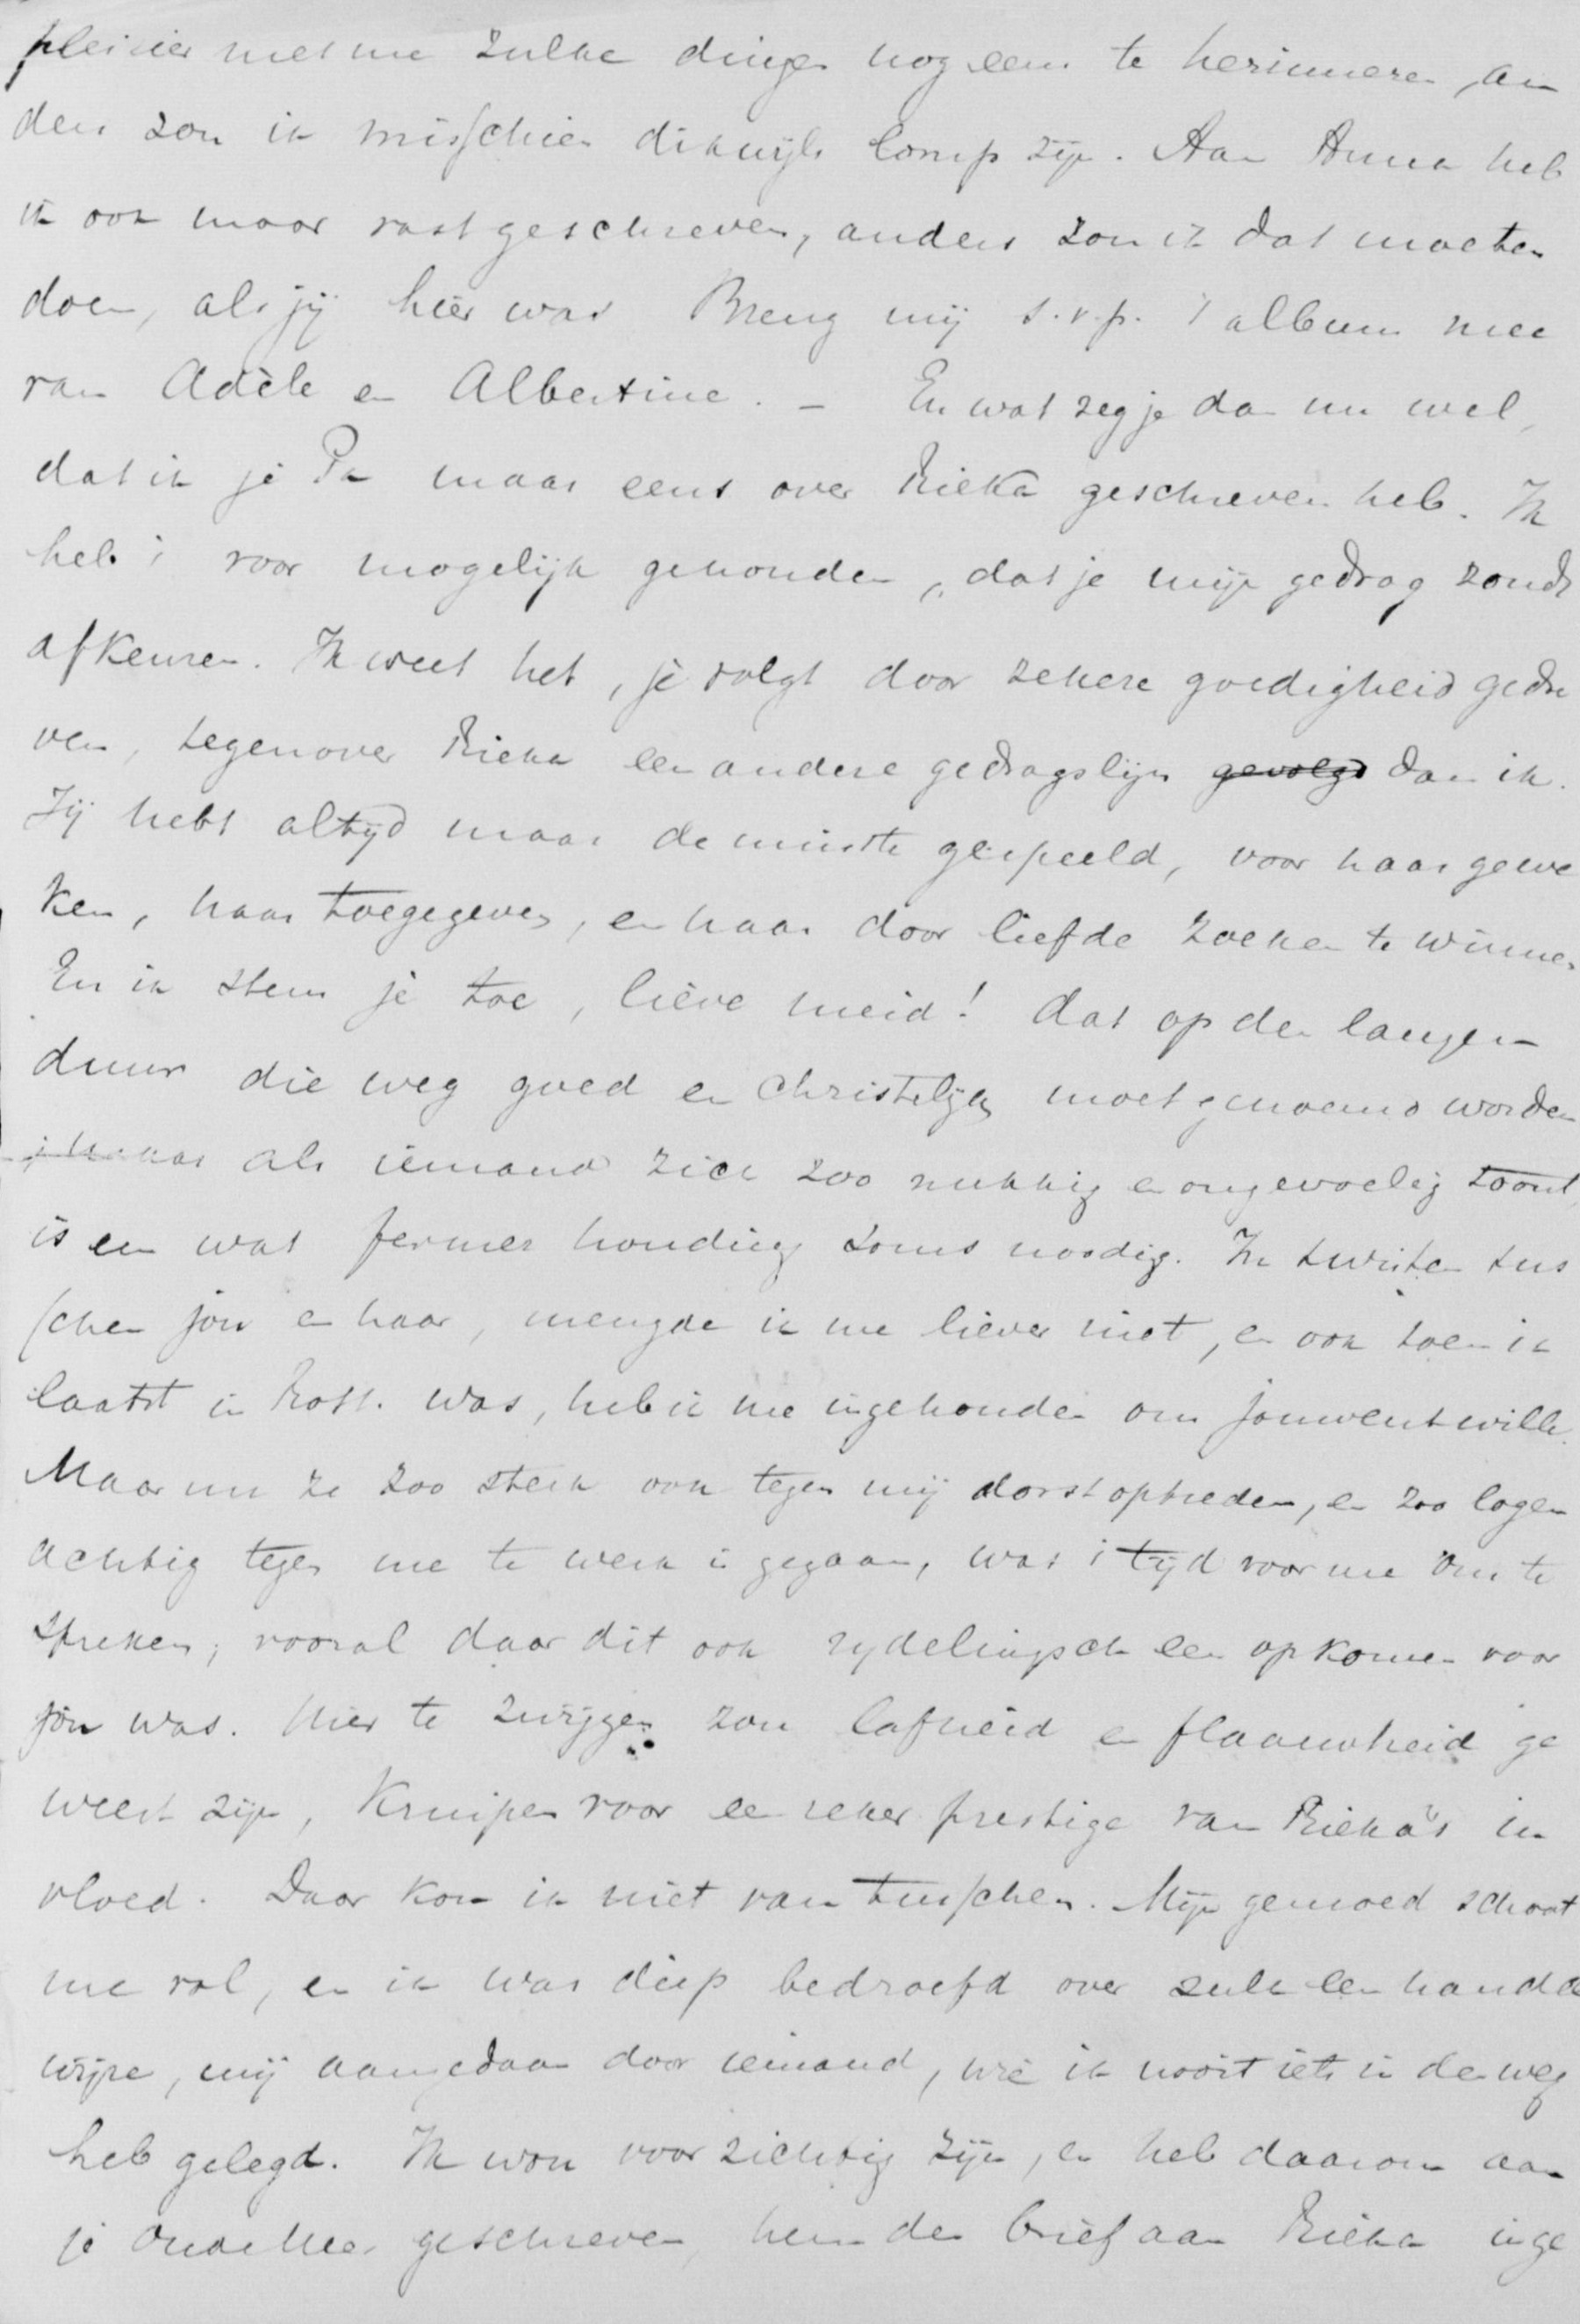 pleizier met me zulke dingen nog eens te herinneren, an
ders zou ik misschien dikwijls lomp zijn. Aan Anna heb
ik ook maar vast geschreven, anders zou ik dat moeten
doen, als jij hier was Breng mij s.v.p. 't album mee
van Adèle en Albertine. – En wat zeg je dan nu wel,
dat ik je Pa maar eens over Rieka geschreven heb. Ik
heb 't voor mogelijk gehouden, dat je mijn gedrag zoudt
afkeuren. Ik weet het, je volgt door zekere goedigheid gedre
ven, tegenover Rieka een andere gedragslijn gevolgd dan ik.
Jij hebt altijd maar de minste gespeeld, voor haar gewe
ken, haar toegegeven, en haar door liefde zoeken te winnen
En ik stem je toe, lieve meid! dat op den langen
duur die weg goed en Christelijk moet genoemd worden
; maar als iemand zich zoo nukkig en ongevoelig toont,
is een wat fermer houding soms noodig. In twisten tus
schen jou en haar, mengde ik me liever niet, en ook toen ik
laatst in Rott. was, heb ik me ingehouden om jouwentwille.
Maar nu ze zoo sterk ook tegen mij dorst optreden, en zoo logen
achtig tegen me te werk is gegaan, was 't tijd voor me om te
spreken, vooral daar dit ook zydelingsch een opkomen voor
jou was. Hier te zwijgen zou lafheid en flaauwheid ge
weest zijn, kruipen voor een zeker prestige van Rieka's in
vloed. Daar kon ik niet van tusschen. Mijn gemoed schoot
me vol, en ik was diep bedroefd over zulk een handel
wijze, mij aangedaan door iemand, wie ik nooit iets in den weg
heb gelegd. Ik wou voorzichtig zijn, en heb daarom aan
je Oude Heer geschreven, hem den brief aan Rieka inge